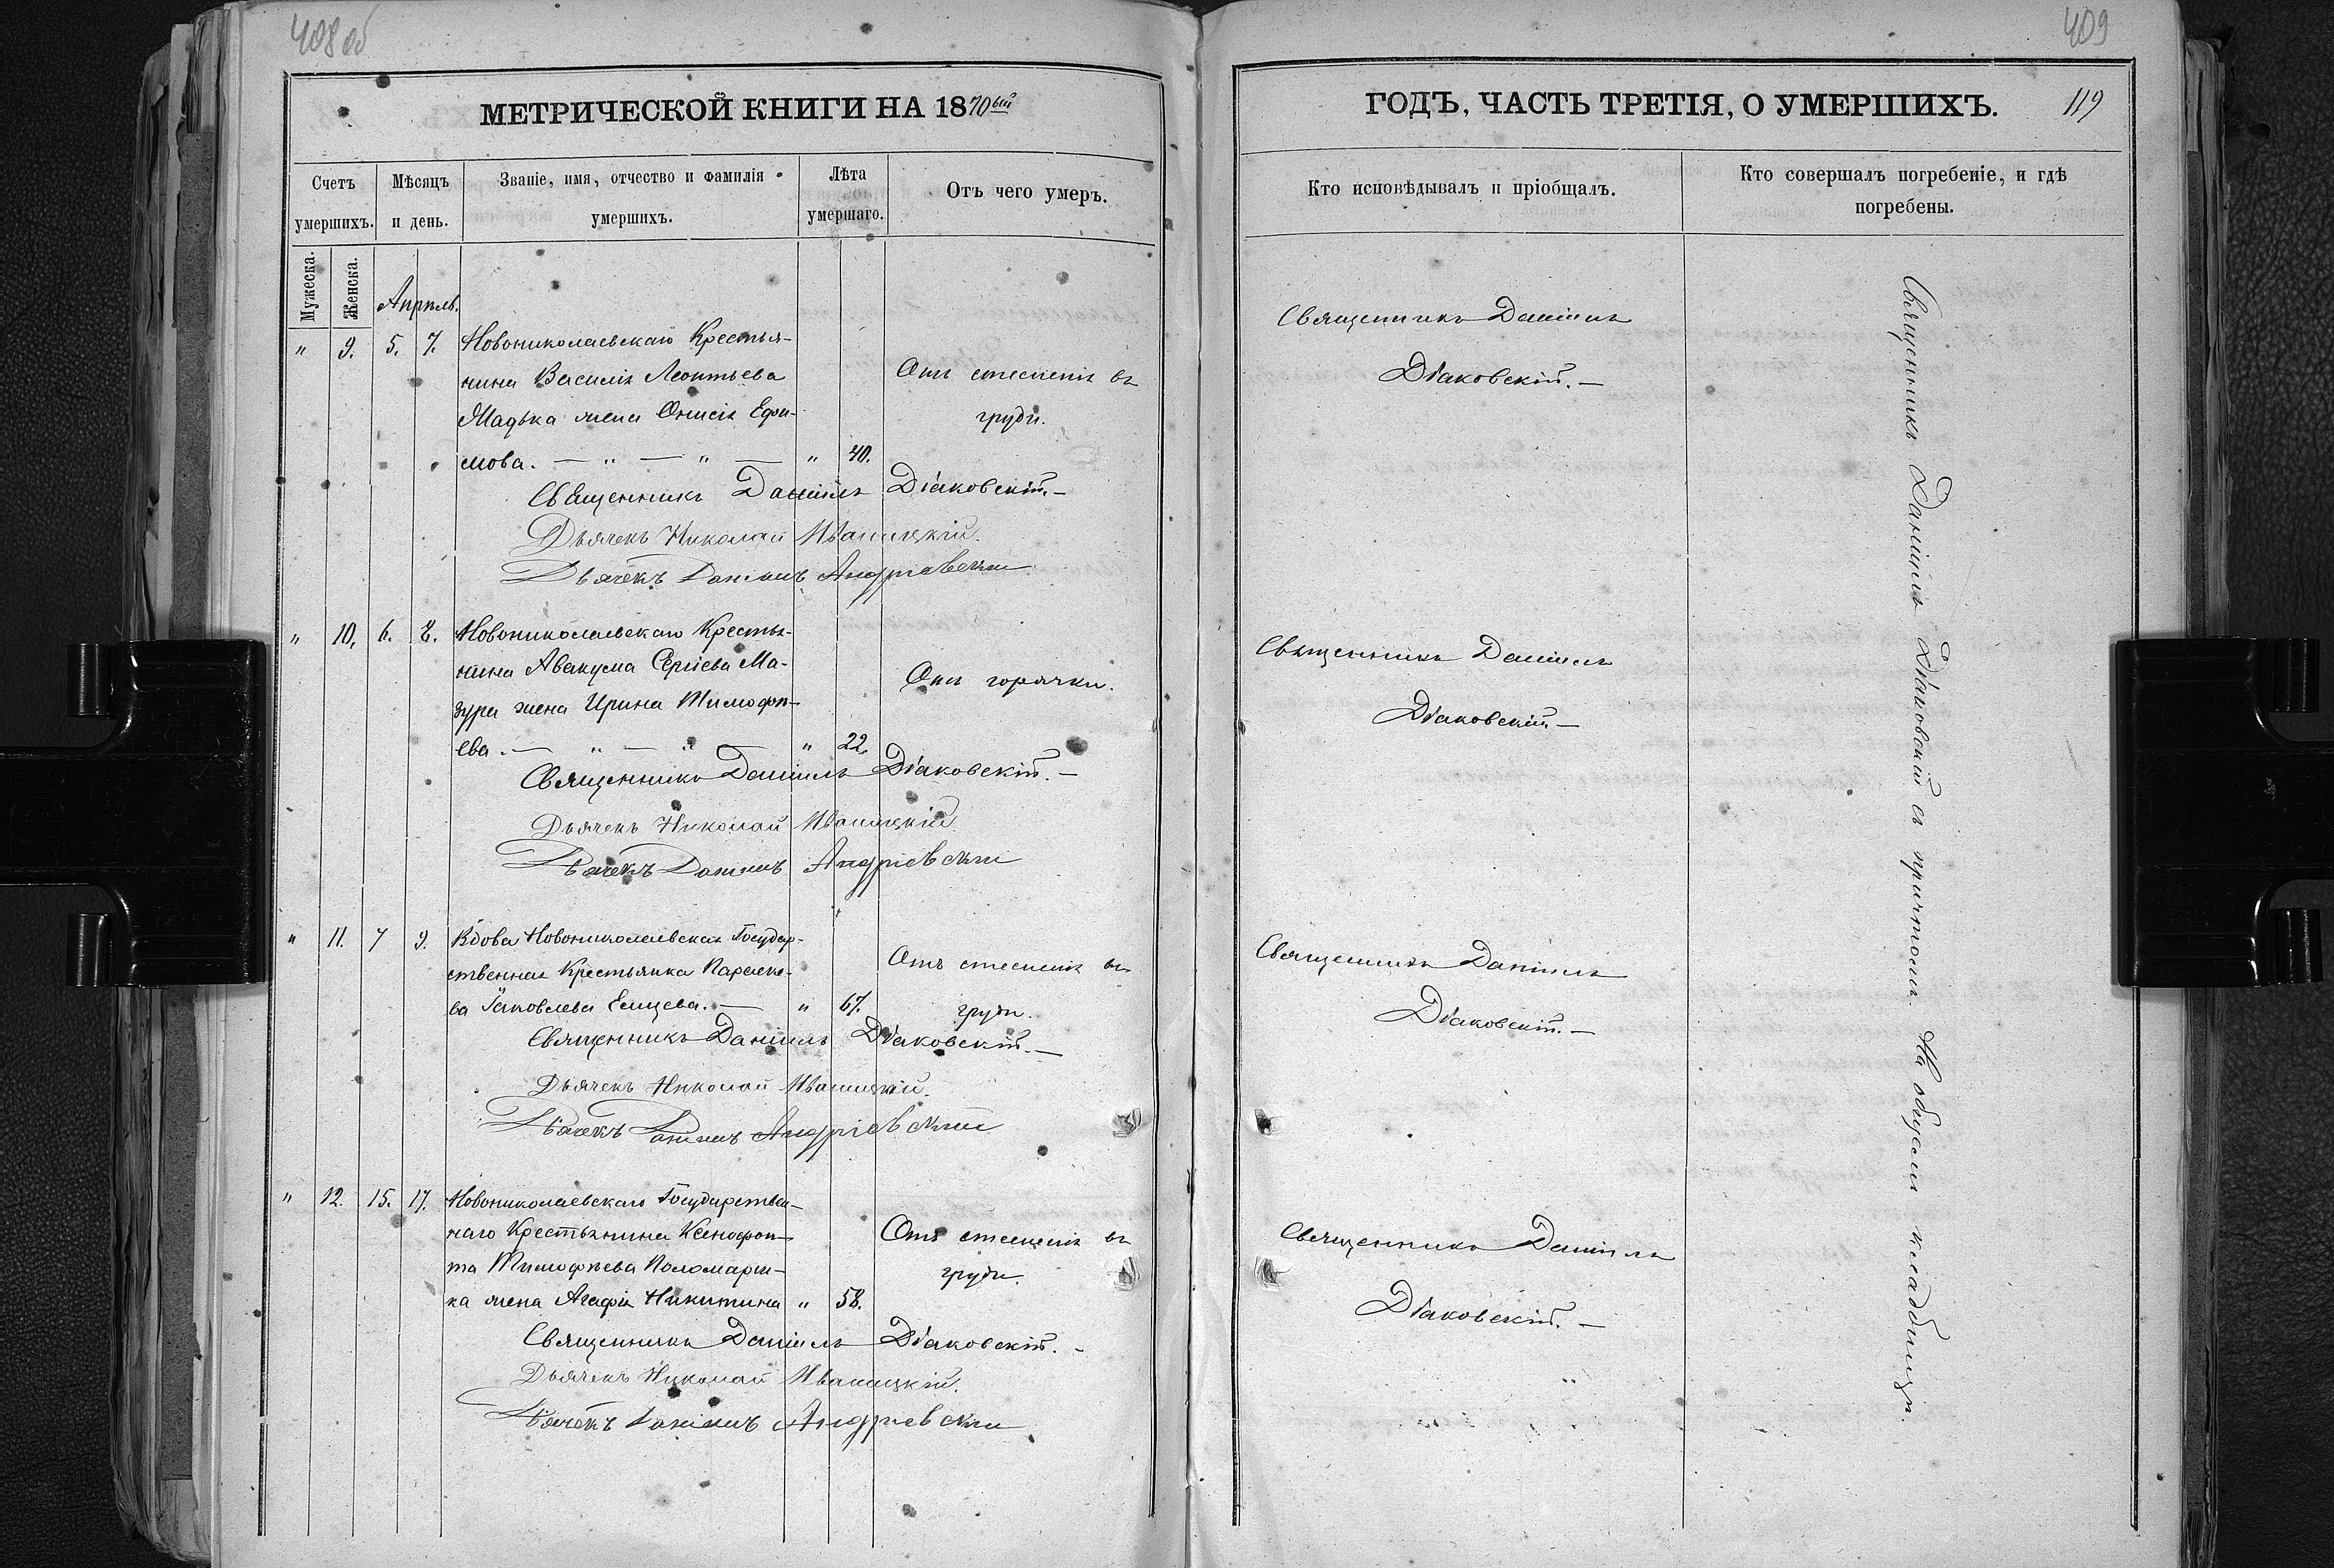 408 об
МЕТРИЧЕСКОЙ КНИГИ НА 1870ый
Счетъ умершихъ.
Мѣсяцъ и день.
Званіе, имя, отчество и фамилія умершихъ.
Лѣта умершаго.
Отъ чего умеръ.
Мужеска.
Женска.
Апрѣль.
" 9. 5. 7. Новониколаевскаго Крестья-
нина Василія Леонтьева
Мадѣка жена Онисія Ефи- Отъ стесненія въ
мова. — " — " — " 40. груди.
Священникъ Даніилъ Діаковскій. —
Дьячекъ Николай Иваницкій.
Дьячекъ Даніилъ Андріевскій
" 10. 6. 8. Новониколаевскаго Крестья-
нина Авакума Сергіева Ма-
зура жена Ирина Тимофѣ- Отъ горячки.
ева. — " — " — " 22.
Священникъ Даніилъ Діаковскій. —
Дьячекъ Николай Иваницкій
Дьячекъ Даніилъ Андріевскій
" 11. 7 9. Вдова Новониколаевская Государ-
ственная Крестьянка Параске- Отъ стесненія въ
ва Іаковлева Емцева. — " 67. груди.
Священникъ Даніилъ Діаковскій. —
Дьячекъ Николай Иваницкій.
Дьячекъ Даніилъ Андріевскій
" 12. 15. 17. Новониколаевскаго Государствен-
наго Крестьянина Ксенофон- Отъ стесненія въ
та Тимофѣева Поломарен- груди.
ка жена Агафія Никитина " 58.
Священникъ Даніилъ Діаковскій. -
Дьячекъ Николай Иваницкій.
Дьячекъ Даніилъ Андріевскій
409
ГОДЪ, ЧАСТЬ ТРЕТІЯ, О УМЕРШИХЪ. 119
Кто исповѣдывалъ и пріобщалъ.
Кто совершалъ погребеніе, и гдѣ
погребены.
Священникъ Даніилъ
Діаковскій. —
Священникъ Даніилъ
Діаковскій. —
Священникъ Даніилъ
Діаковскій. —
Священникъ Даніилъ
Діаковскій. —
Священникъ Даніилъ Діаковскій съ причтомъ. На общемъ кладбищѣ.